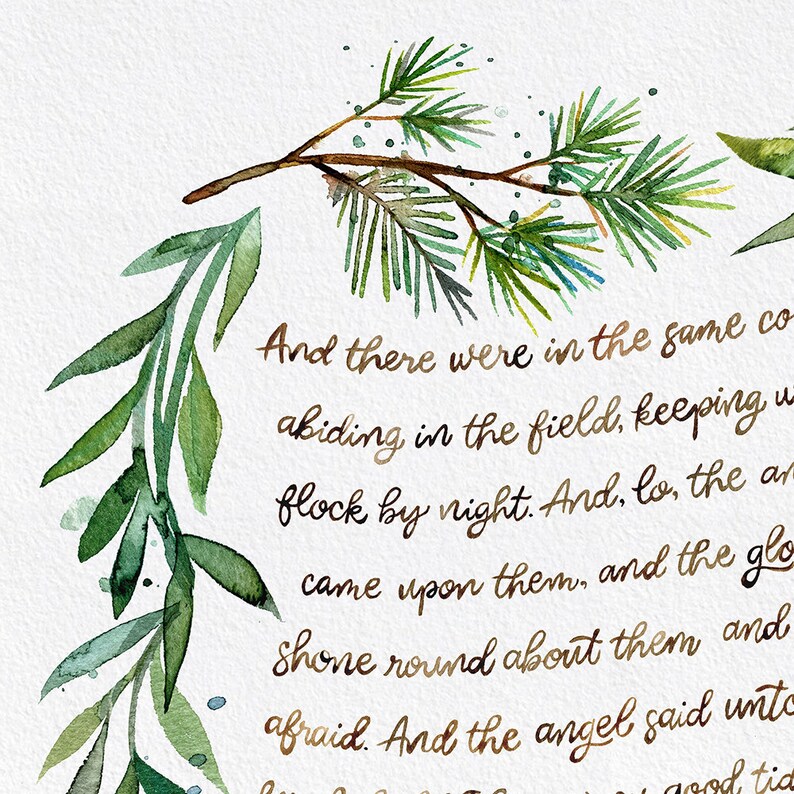 And there were in the same co
abiding in the field, keeping w
flock by night. And, lo, the an
came upon them, and the glo
shone round about them and
afraid. And the angel said unto
good tid